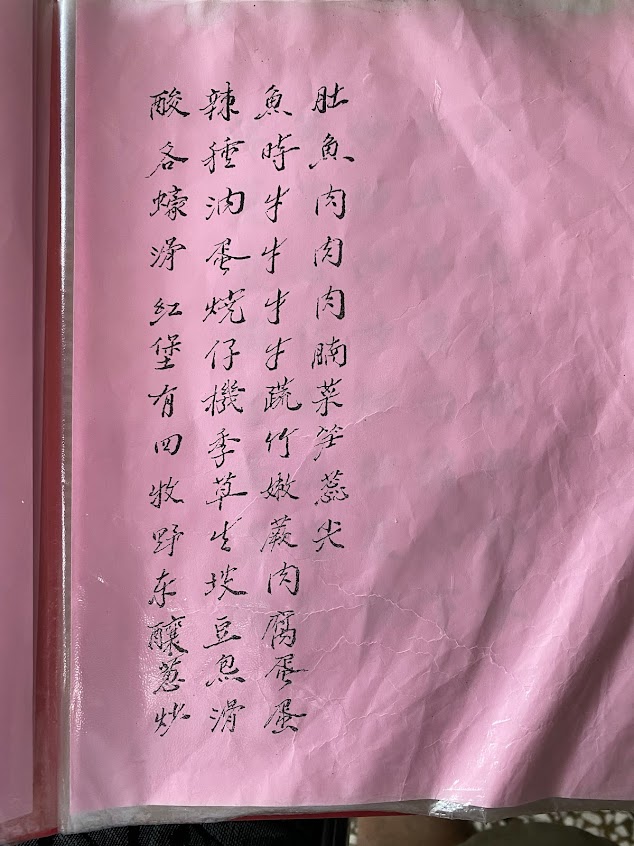 酸辣魚肚
各種時魚
蠔油牛肉
滑蛋牛肉
紅燒牛肉
堡仔牛腩
有機蔬菜
四季竹笋
牧草嫩蕊
野生蕨尖
东坡肉
釀豆腐
葱蛋
炒滑蛋